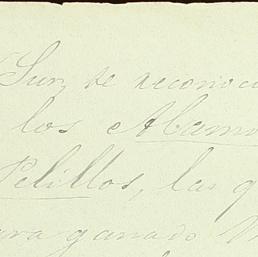 Sur, se reconoci
los Alamo
Pelillos, las q
ara ganado